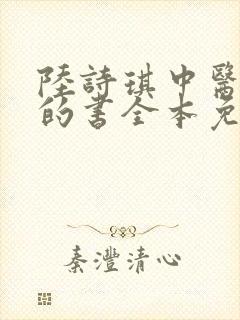 陸詩琪中醫
的書全本免
秦灃清心